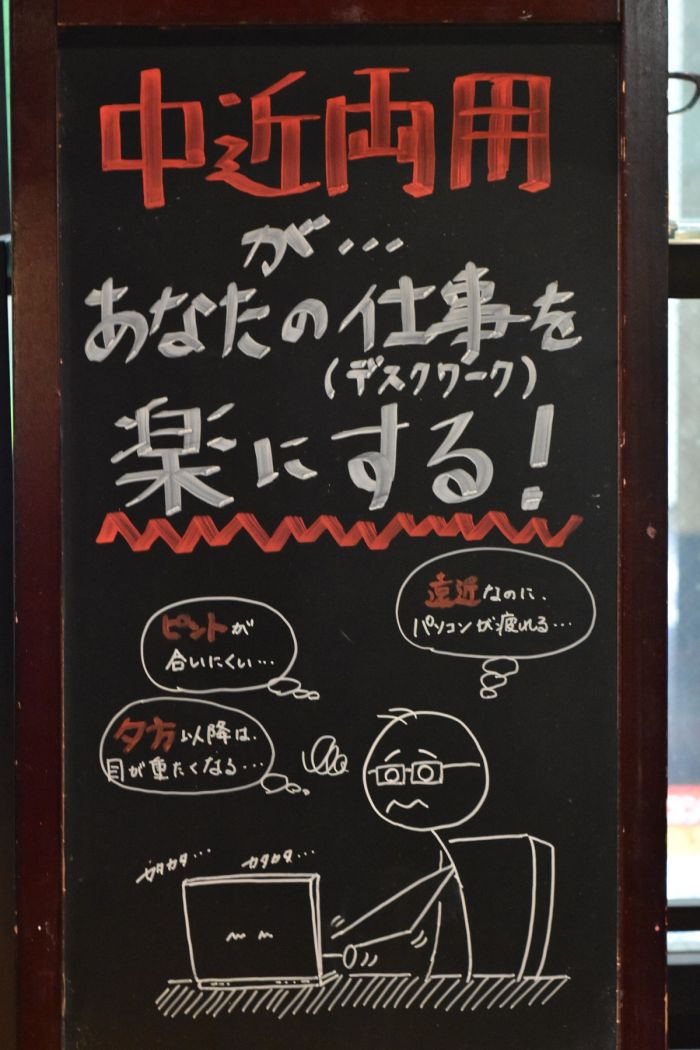 中近両用
が…
あなたの仕事を
(デスクワーク)
楽にする!
遠近なのに、
パソコンが疲れる…
ピントが
合いにくい…
夕方以降は、
目が重たくなる…
カタカタ…
カタカタ…